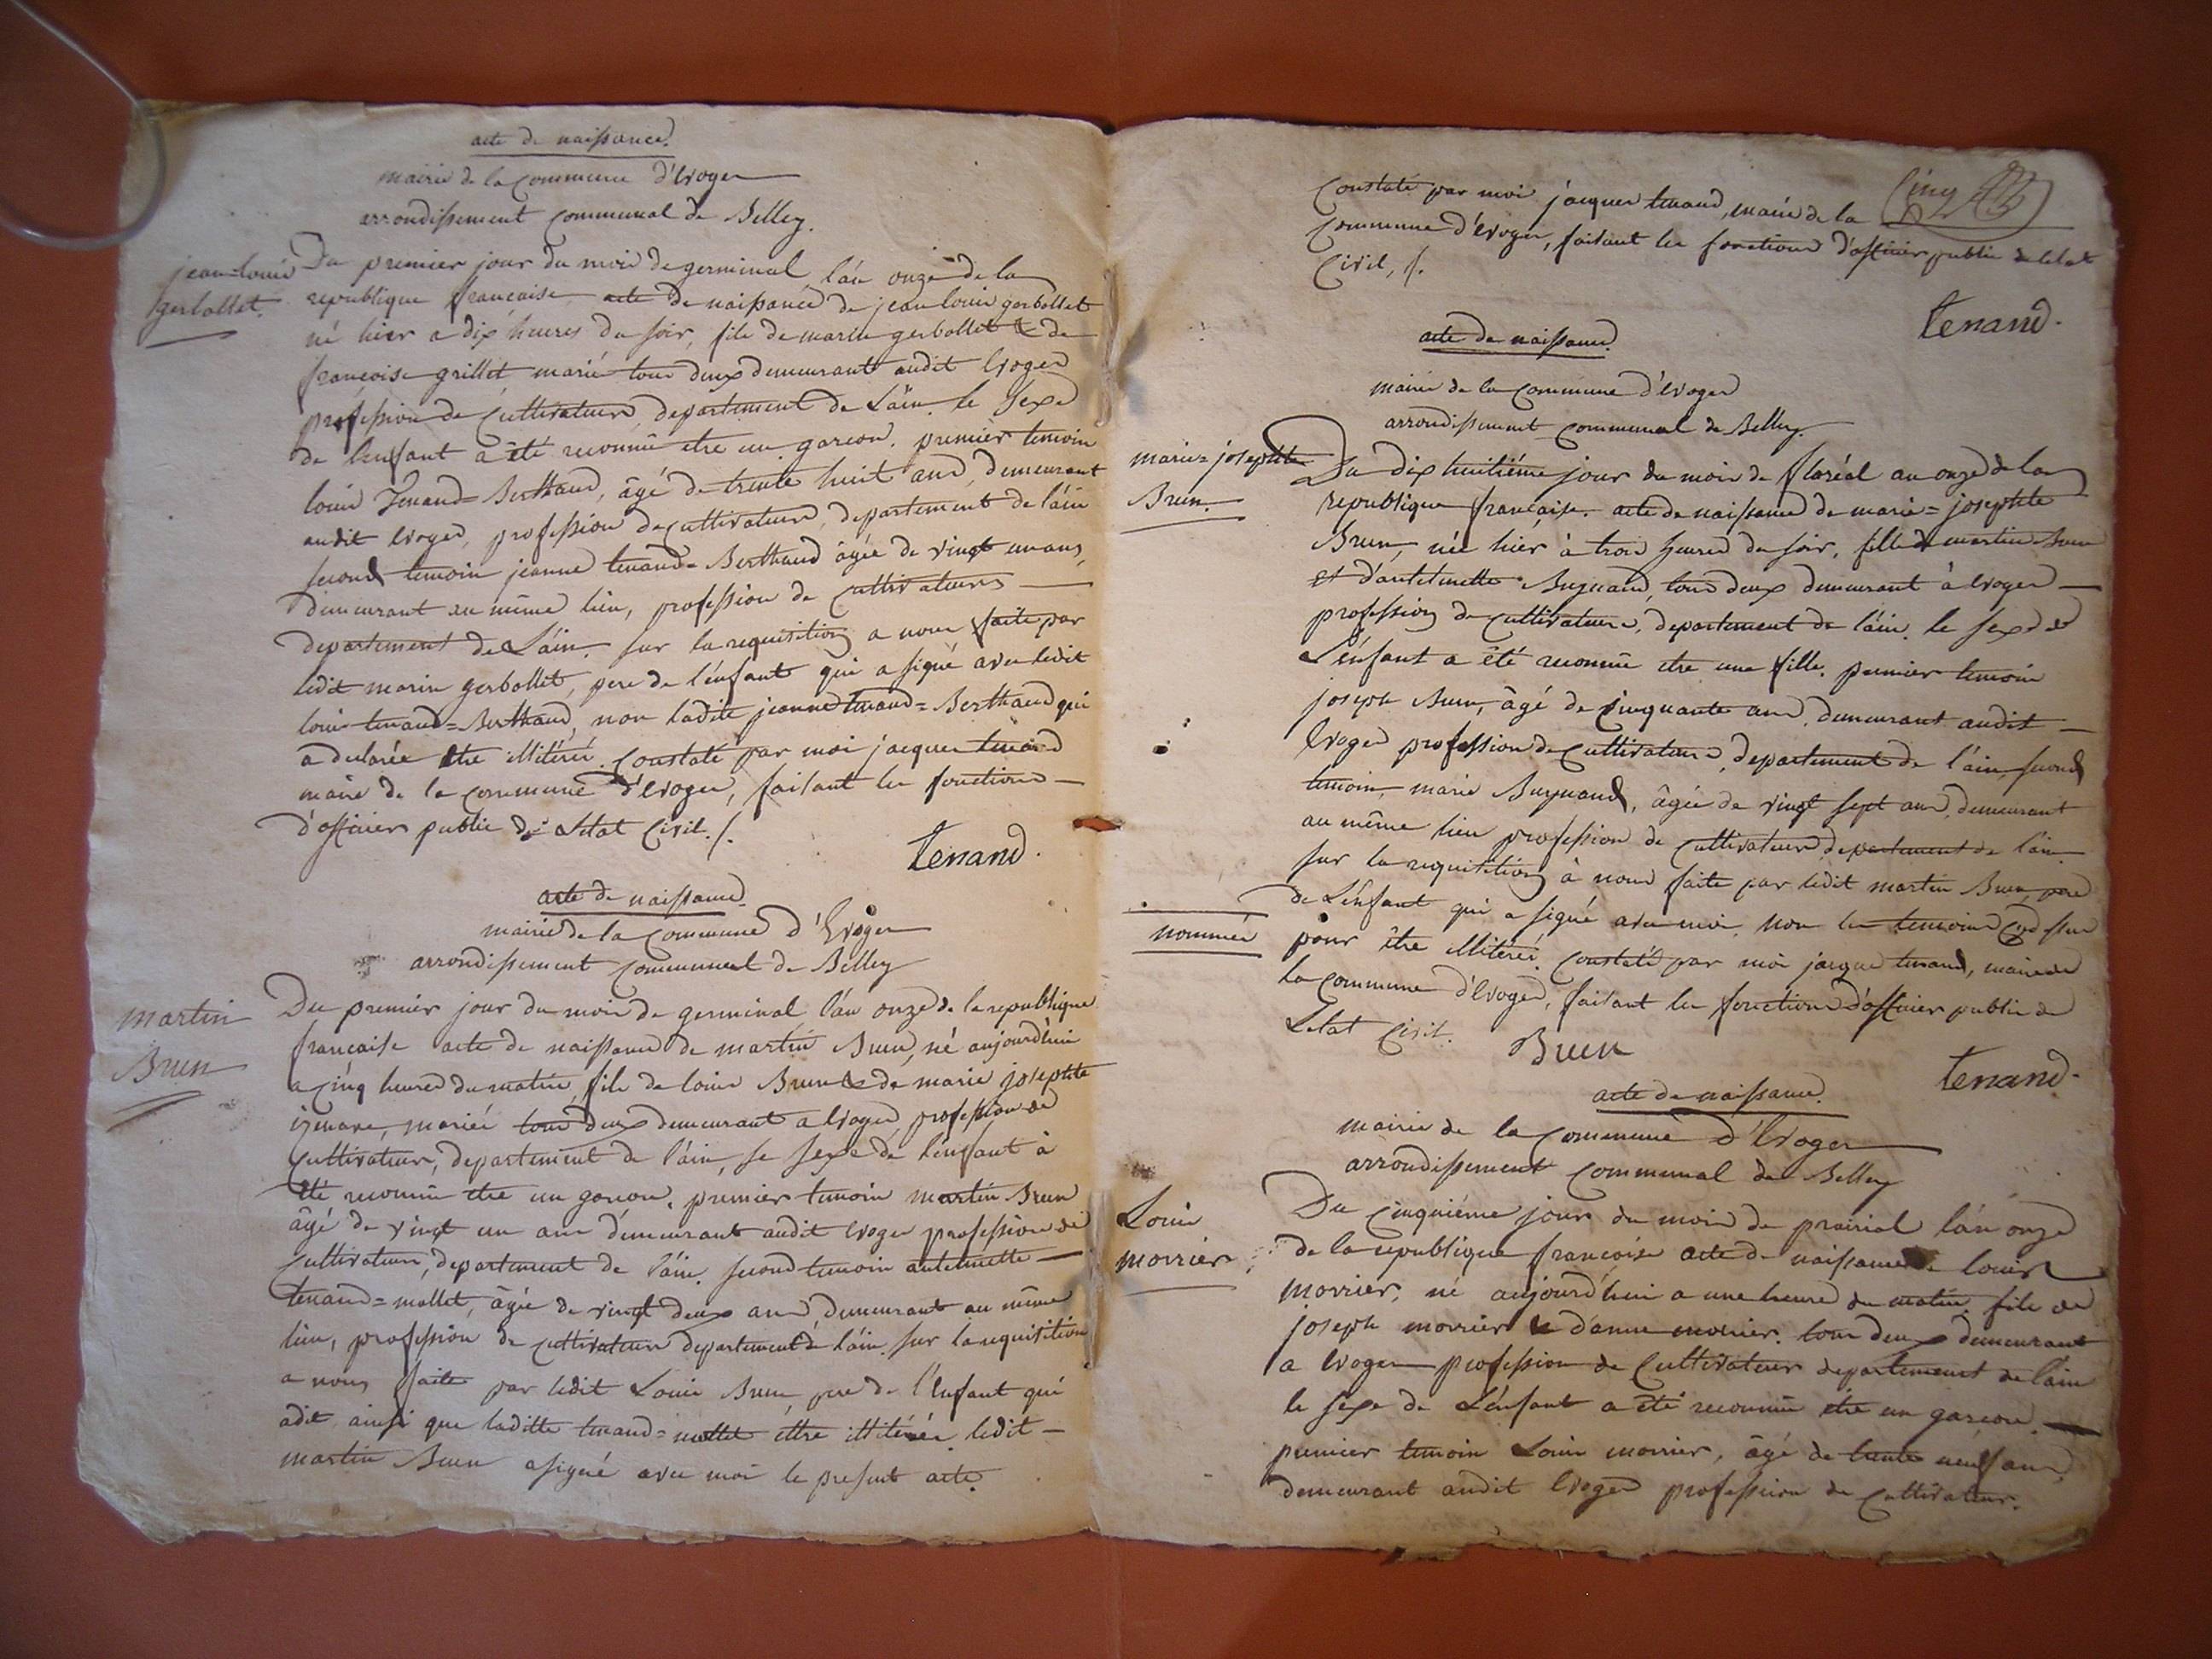 acte de naissance.
mairie de la commune d'Evoges
arrondissement communal de Belley.
jean=louis
gerbollet.
Du premier jour du mois de germinal l'an onze de la
republique francaise acte de naissance de jean louis gerbollet
né hier a dix heures du soir, fils de marin gerbollet & de
francoise grillet marié tous deux demeurant audit Evoges
profession de cultivateurs, departement de L'ain. le sexe
de l'enfant a été reconnü etre un garcon. premier temoin
louis Tenand=Berthaud, âgé de trente huit ans, demeurant
audit Evoges, profession de cultivateurs, departement de l'ain
second temoin jeanne tenand=Berthaud âgée de vingt un ans,
demeurant au même lieu, profession de cultivateurs
departement de L'ain. sur la requisition a nous faite par
ledit marin gerbollet, pere de l'enfant qui a signé avec ledit
louis tenand=Berthaud, non ladite jeanne tenand=Berthaud qui
a declarée etre illitéré. Constaté par moi jacques tenand
maire de la commune d'Evoges, faisant les fonctions
d'officier public de Letat Civil./.
Tenand.
acte de naissance.
mairie de la commune d'Evoges
arrondissement communal de Belley
martin
Brun
Du premier jour du mois de germinal l'an onze de la republique
francaise acte de naissance de martin Brun, né aujourd'hui
a cinq heures du matin, fils de louis Brun & de marie josephte
mariés tous deux demeurant a Evoges, profession de
cultivateurs, departement de l'ain, le sexe de l'enfant à
été reconnü etre un garcon. premier temoin martin Brun
âgé de vingt un ans demeurant audit Evoges profession de
cultivateurs, departement de l'ain. second temoin antelmette
tenand=mollet, âgée de vingt deux ans demeurant au même
lieu, profession de cultivateurs departement de l'ain. sur la requisition
a nous faite par ledit Louis Brun, pere de l'enfant qui
a dit ainsi que laditte tenand=mollet etre illitérés. ledit
martin Brun a signé avec moi le present acte.
Cinq
Constaté par moi jacques tenand, maire de la
commune d'Evoges, faisant les fonctions d'officier public de letat
Civil, /.
Tenand.
acte de naissance.
mairie de la commune d'Evoges
arrondissement communal de Belley.
marie=josephte
Brun.
Du dix huitiéme jour du mois de floréal an onze de la
republique francaise. acte de naissance de marie=josephte
Brun, née hier à trois heures du soir, fille de martin Brun
et d'antelmette Buynand, tous deux demeurant à Evoges
profession de cultivateurs, departement de l'ain. le sexe de
L'enfant a été reconnü etre une fille. premier temoin
joseph Brun, âgé de cinquante ans, demeurant audit
Evoges profession de cultivateurs, departement de l'ain, second
temoin, marie Buynand, âgée de vingt sept ans, demeurant
au même lieu profession de cultivateurs, departement de l'ain.
sur la requisition à nous faite par ledit martin Brun, pere
de L'enfant qui a signé avec moi, non les temoins cy dessus
nommés
pour être illitérés. Constaté par moi jacques tenand, maire de
la commune d'Evoges, faisant les fonctions d'officier public de
Letat Civil.
Brun
Tenand.
acte de naissance.
mairie de la commune d'Evoges
arrondissement communal de Belley
Louis
morrier.
Du cinquiéme jour du mois de prairial l'an onze
de la republique francoise acte de naissance de louis
morrier, né aujourd'hui a une heure du matin fils de
joseph morrier & d'anne morrier. tous deux demeurant
a Evoges profession de Cultivateurs departement de l'ain
le sexe de L'enfant a été reconnü être un garcon.
premier temoin Louis morrier, âgé de trente neuf ans,
demeurant audit Evoges profession de cultivateur.